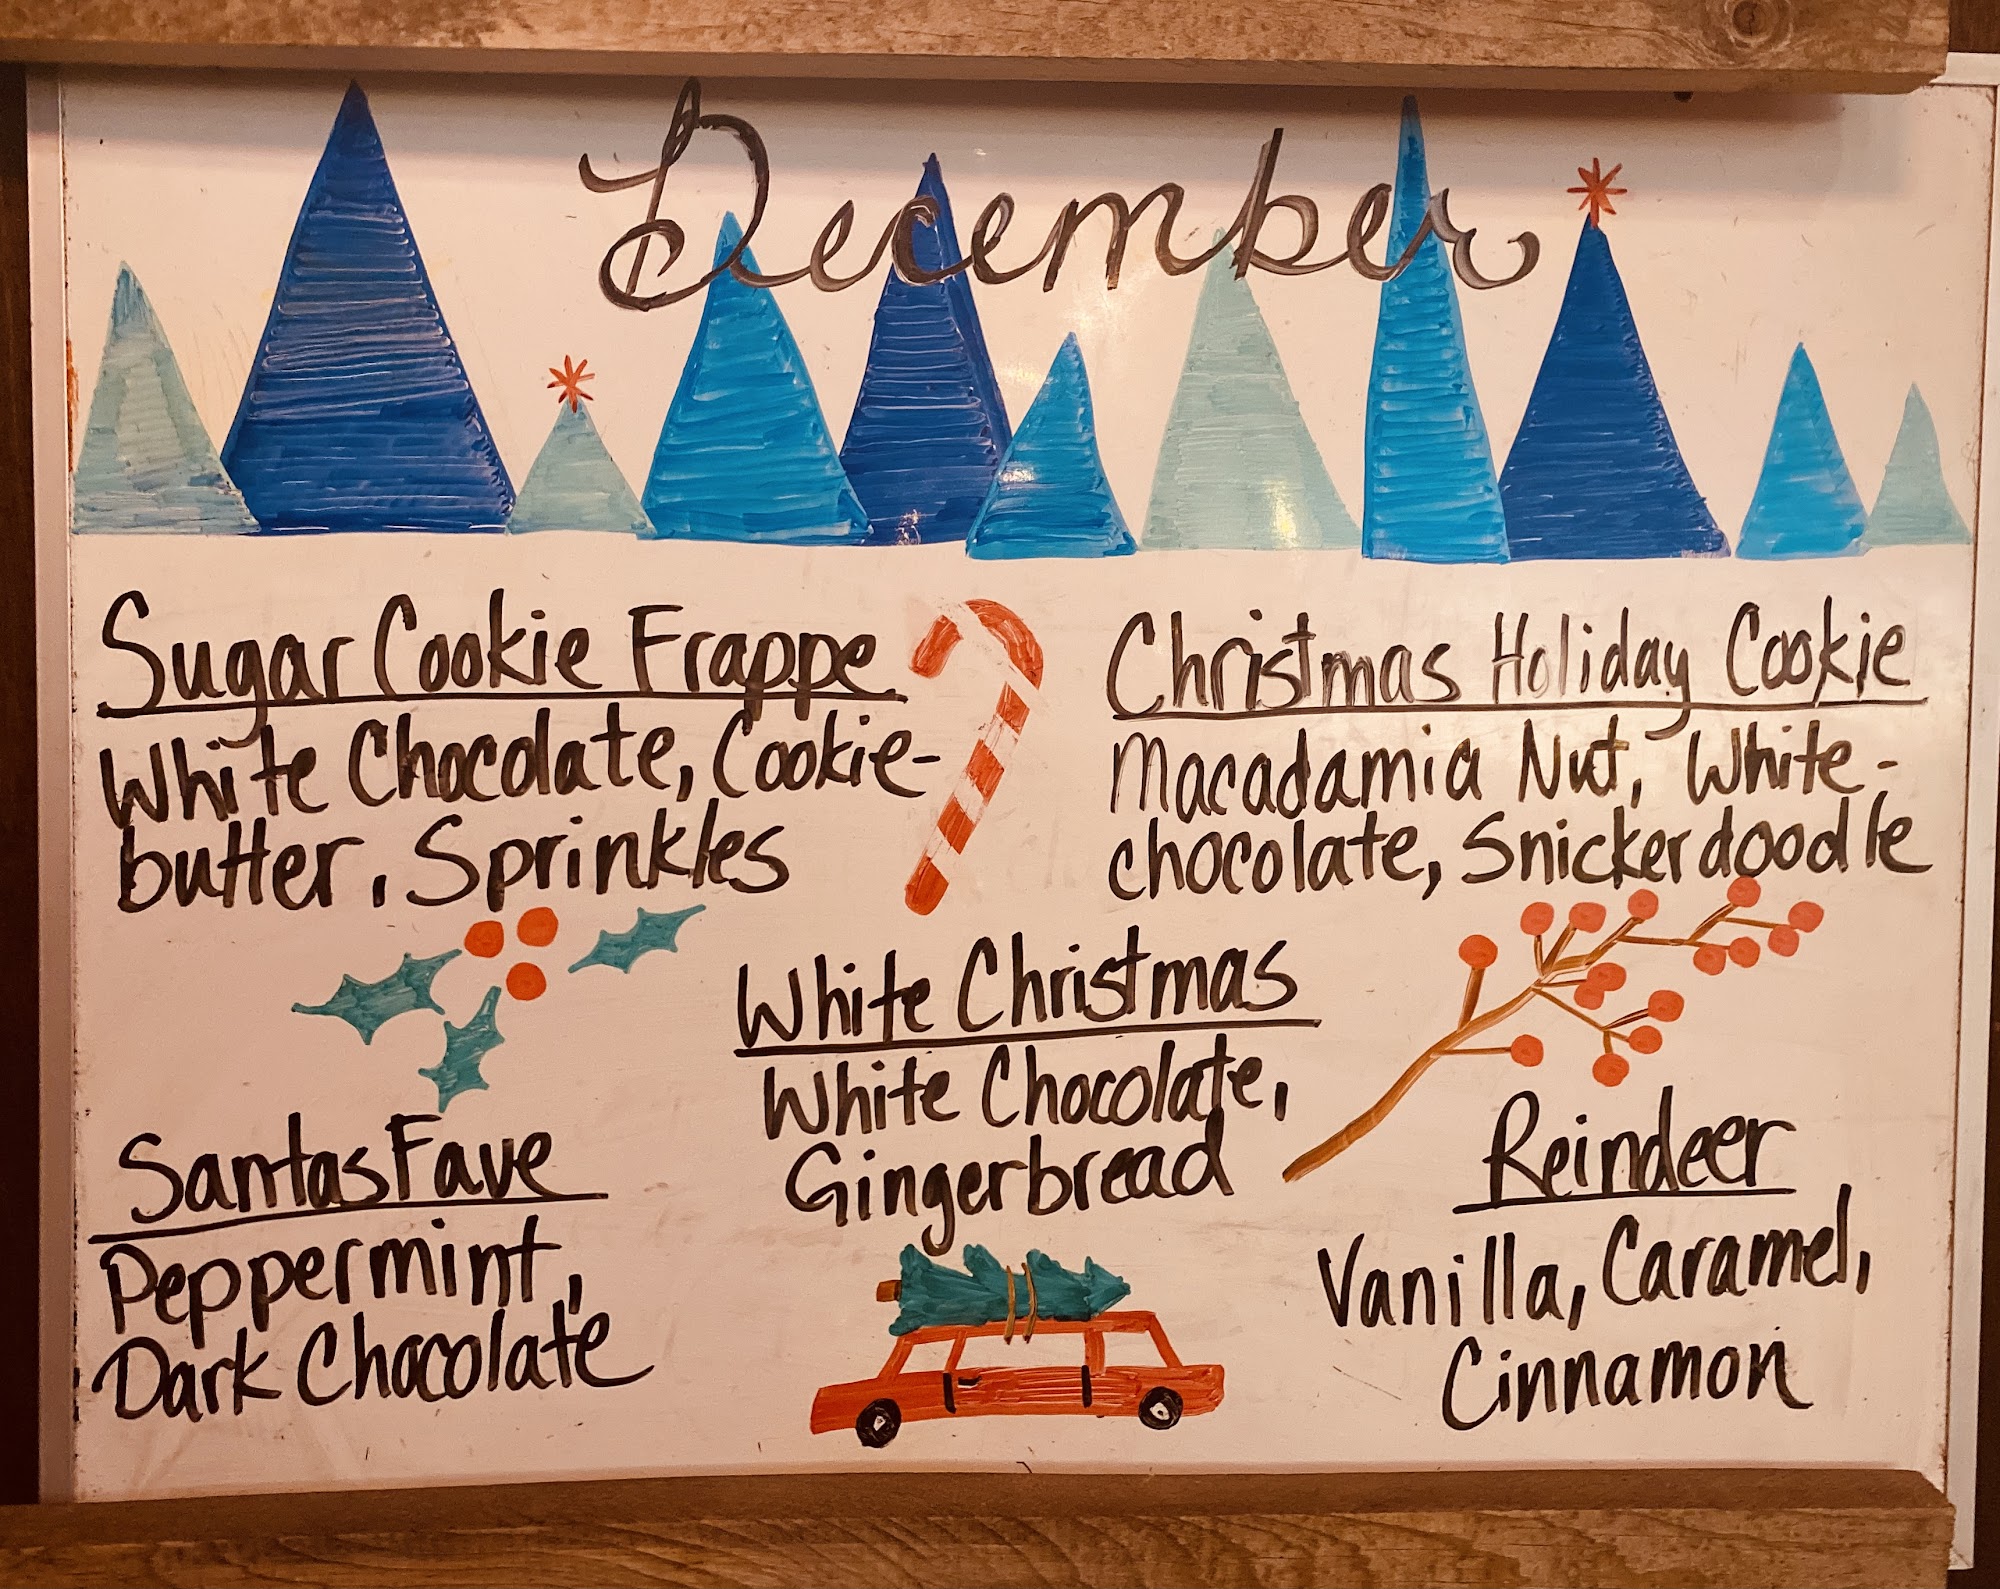 December
Sugar Cookie Frappe
White Chocolate, Cookie-
butter, Sprinkles
Christmas Holiday Cookie
Macadamia Nut, White-
chocolate, Snickerdoodle
White Christmas
White Chocolate,
Gingerbread
Santas Fave
Peppermint,
Dark Chocolate
Reindeer
Vanilla, Caramel,
Cinnamon